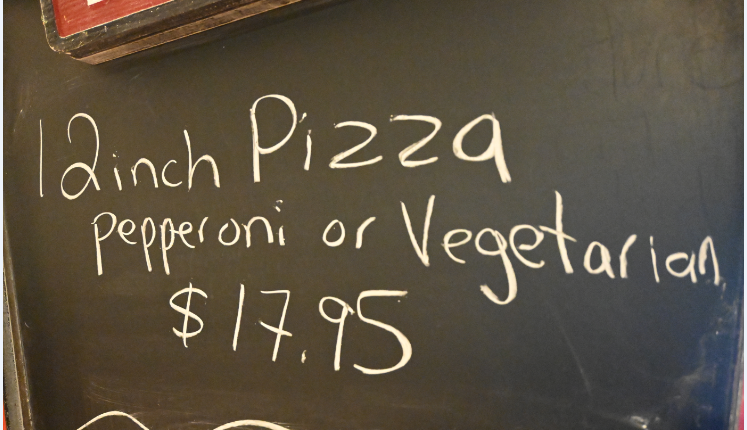 12inch Pizza
pepperoni or Vegetarian
$17.95